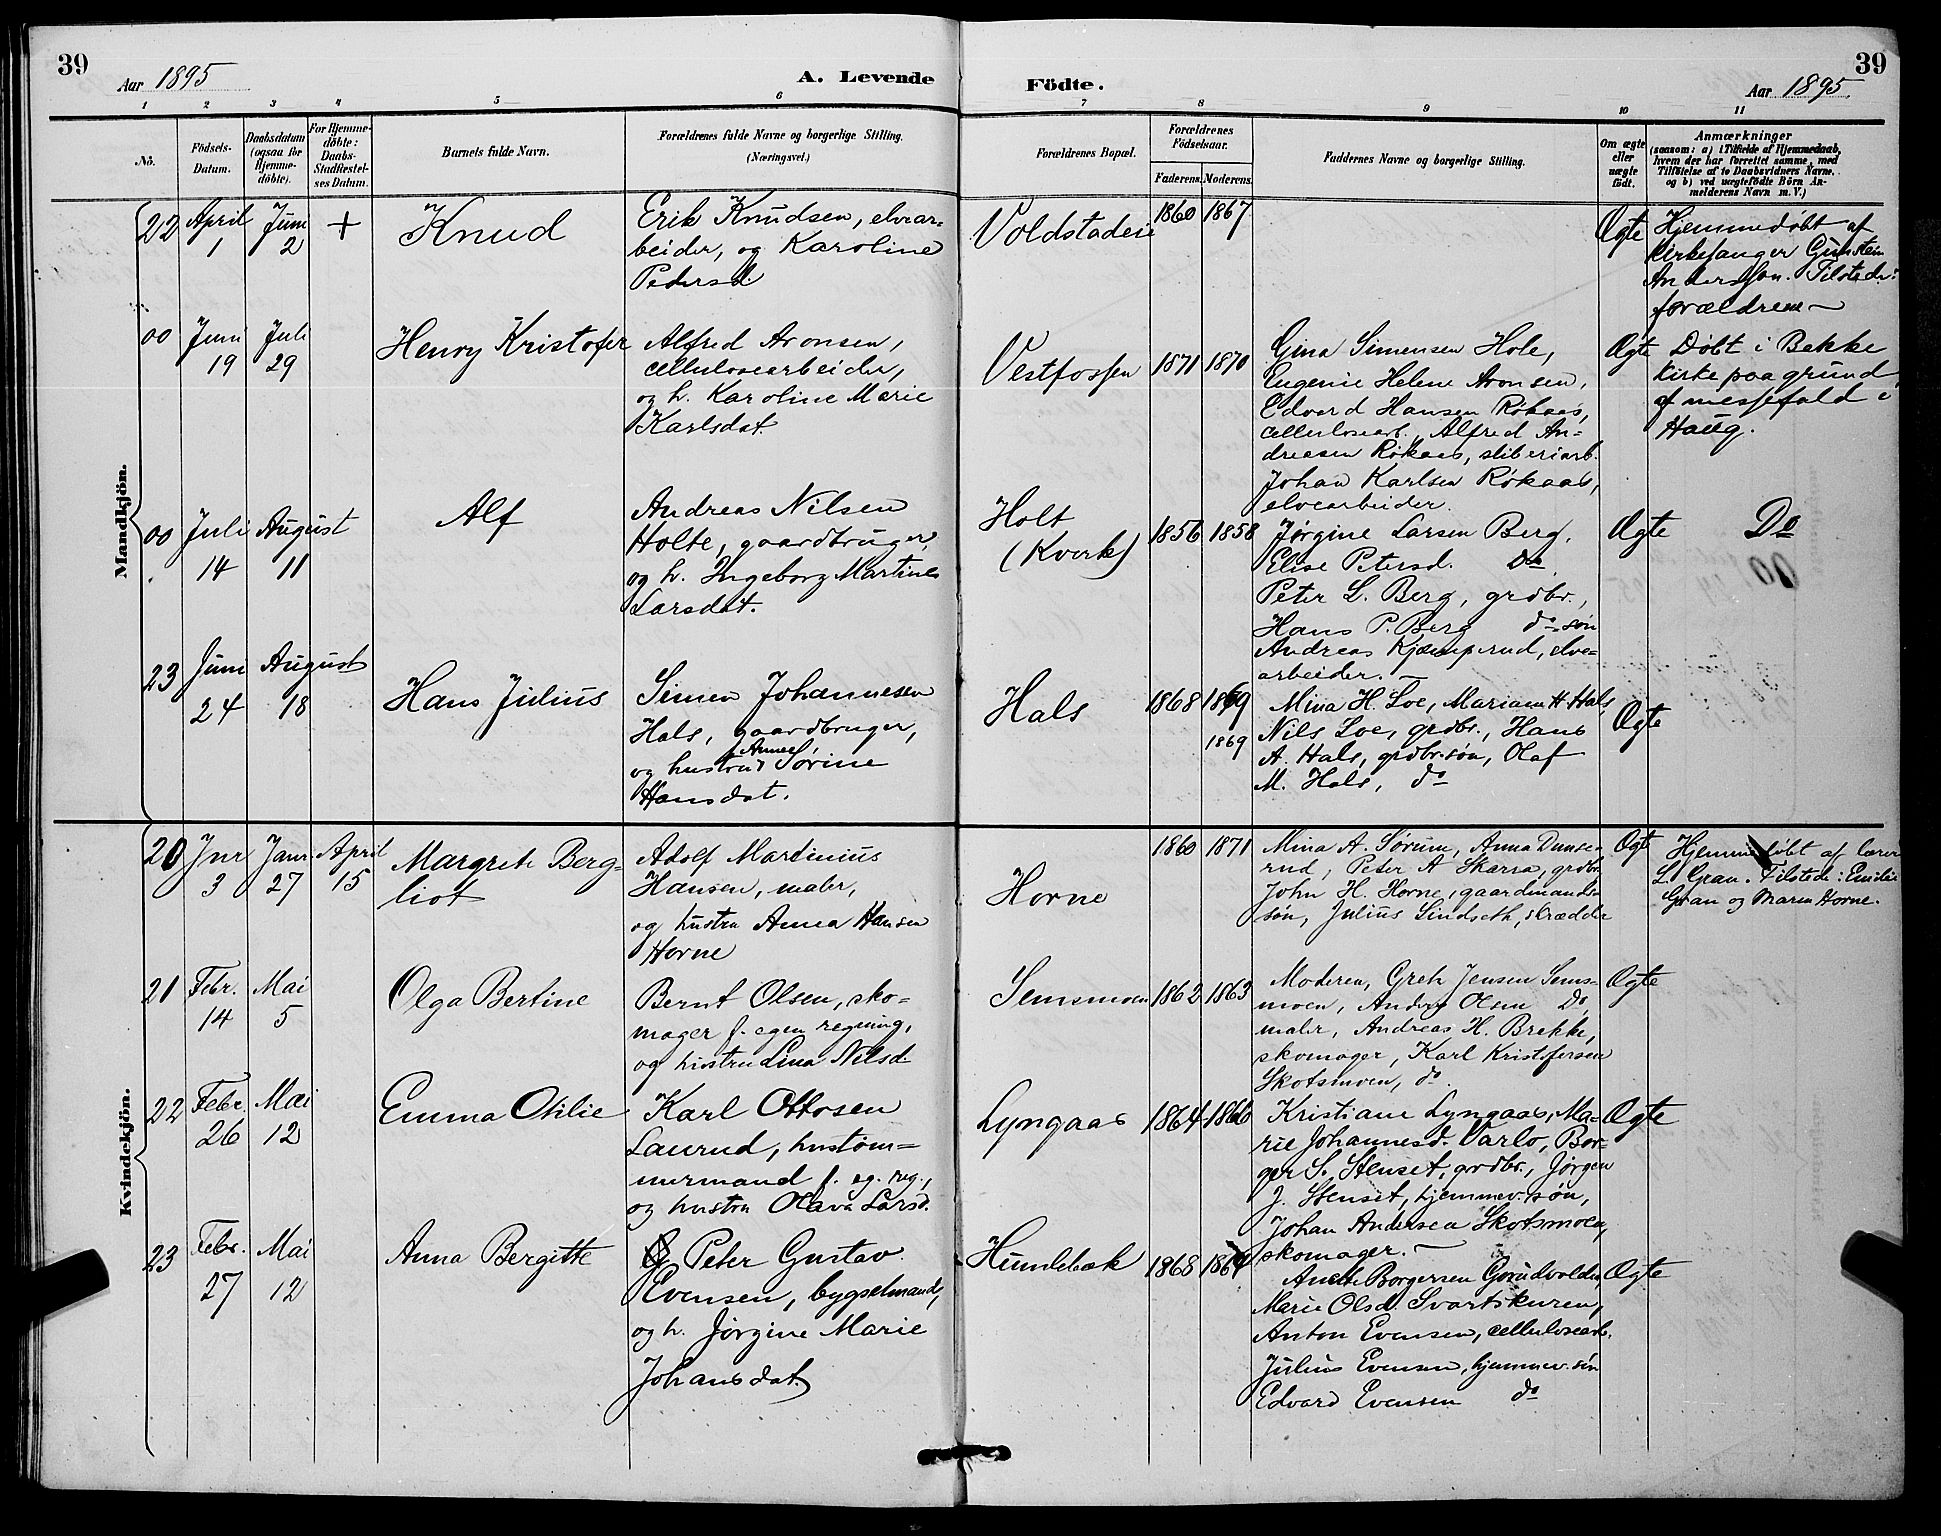 39
Aar 1895
A. Levende
Födte.
Aar 1895.
39
1 2 3 4 5 6 7 8 9 10 11
No.
Födsels-
Datum.
Daabsdatum
(ogsaa for
Hjemme-
döbte).
For Hjemme-
döbte:
Daabs-
Stadfæstel-
ses Datum.
Barnets fulde Navn.
Forældrenes fulde Navne og borgerlige Stilling.
(Næringsvei.)
Forældrenes Bopæl.
Forældrenes
Födselsaar.
Faderens. Moderens.
Faddernes Navne og borgerlige Stilling.
Om ægte
eller
uægte
født.
Anmærkninger
(saasom: a) i Tilfælde af Hjemmedaab,
hvem der har forrettet samme, med
Tilføielse af to Daabsvidners Navne,
og b) ved uægtefödte Börn An-
melderens Navn m. V.)
Mandkjön.
22
April
1
Juni
2
+
Knud
Erik Knudsen, elvear-
beider, og Karoline
Pedersd.
Voldstaden
1860 1867
Ægte
Hjemmedøbt af
kirkesanger Gunstein
Anderssen. Tilstede:
forældrene
00
Juni
19
Juli
29
Henry Kristofer
Alfred Aronsen,
cellulosearbeider,
og h. Karoline Marie
Karlsdat.
Vestfossen
1871 1870
Gina Simensen Hole,
Eugenie Helene Aronsen,
Edvard Hansen Røkaas,
cellulosearb. Alfred An-
dreasen Røkaas, sliberiarb.
Johan Karlsen Røkaas,
elvearbeider.
Ægte
Døbt i Bakke
kirke paa grund
af messefald i
Haug.
00
Juli
14
August
11
Alf
Andreas Nilsen
Holte, gaardbruger,
og h. Ingeborg Martine
Larsdat.
Holt
(Kverk)
1856 1858
Jørgine Larsen Berg,
Elise Petersd. Do
Peter L. Berg, grdbr.,
Hans P. Berg do søn
Andreas Kjæmperud, elve-
arbeider.
Ægte
Do
00
23
Juni
24
August
18
Hans Julius
Simen Johannesen
Hals, gaardbruger,
Anne
og hustru Sørine
Hansdat.
Hals
1868 1869
1869
Mina H. Loe, Mariann H. Hals,
Nils Loe, grdbr., Hans
A. Hals, grdbr.søn, Olaf
M. Hals, do
Ægte
Kvindekjön.
20
Jnr
3
Janr.
27
April
15
Margrete Berg-
liot
Adolf Martinius
Hansen, maler,
og hustru Anna Hansen
Horne
Horne
1860 1871
Mina A. Sørum, Anna Dunse-
rud, Peter A Skarra, grdbr.
John H. Horne, gaardmands-
søn, Julius Lindseth, skrædder
Ægte
Hjemmedøbt af lærer
L. Gran. Tilstede: Emilie
Gran og Maren Horne.
21
Febr.
14
Mai
5
Olga Bertine
Bernt Olsen, sko-
mager f. egen regning,
og hustru Lina Nilsd.
Semsmoen
1862 1863
Moderen, Grete Jensen Sems-
moen, Anders Olsen Do,
maler, Andreas H. Brekke,
skomager, Karl Kristofersen
Skotsmoen, do.
Ægte
22
Febr.
26
Mai
12
Emma Otilie
Karl Ottosen
Laurud, hustøm-
mermand f. eg. reg.,
og hustru Olava Larsd.
Lyngaas
1864 1866
Kristiane Lyngaas, Ma-
rie Johannesd. Varlo, Bor-
ger S. Stenset, grdbr., Jørgen
J. Stenset, hjemmev. søn,
Johan Andersen Skotsmoen,
skomager.
Ægte
23
Febr.
27
Mai
12
Anna Bergitte
Peter Gustav
Evensen, bygselmand,
og h. Jørgine Marie
Johansdat.
Hundebæk
1868 1864
Anette Borgersen Grudvolden,
Marie Olsd. Svartskuren,
Anton Evensen, cellulosearb.
Julius Evensen, hjemmev. søn
Edvard Evensen do
Ægte